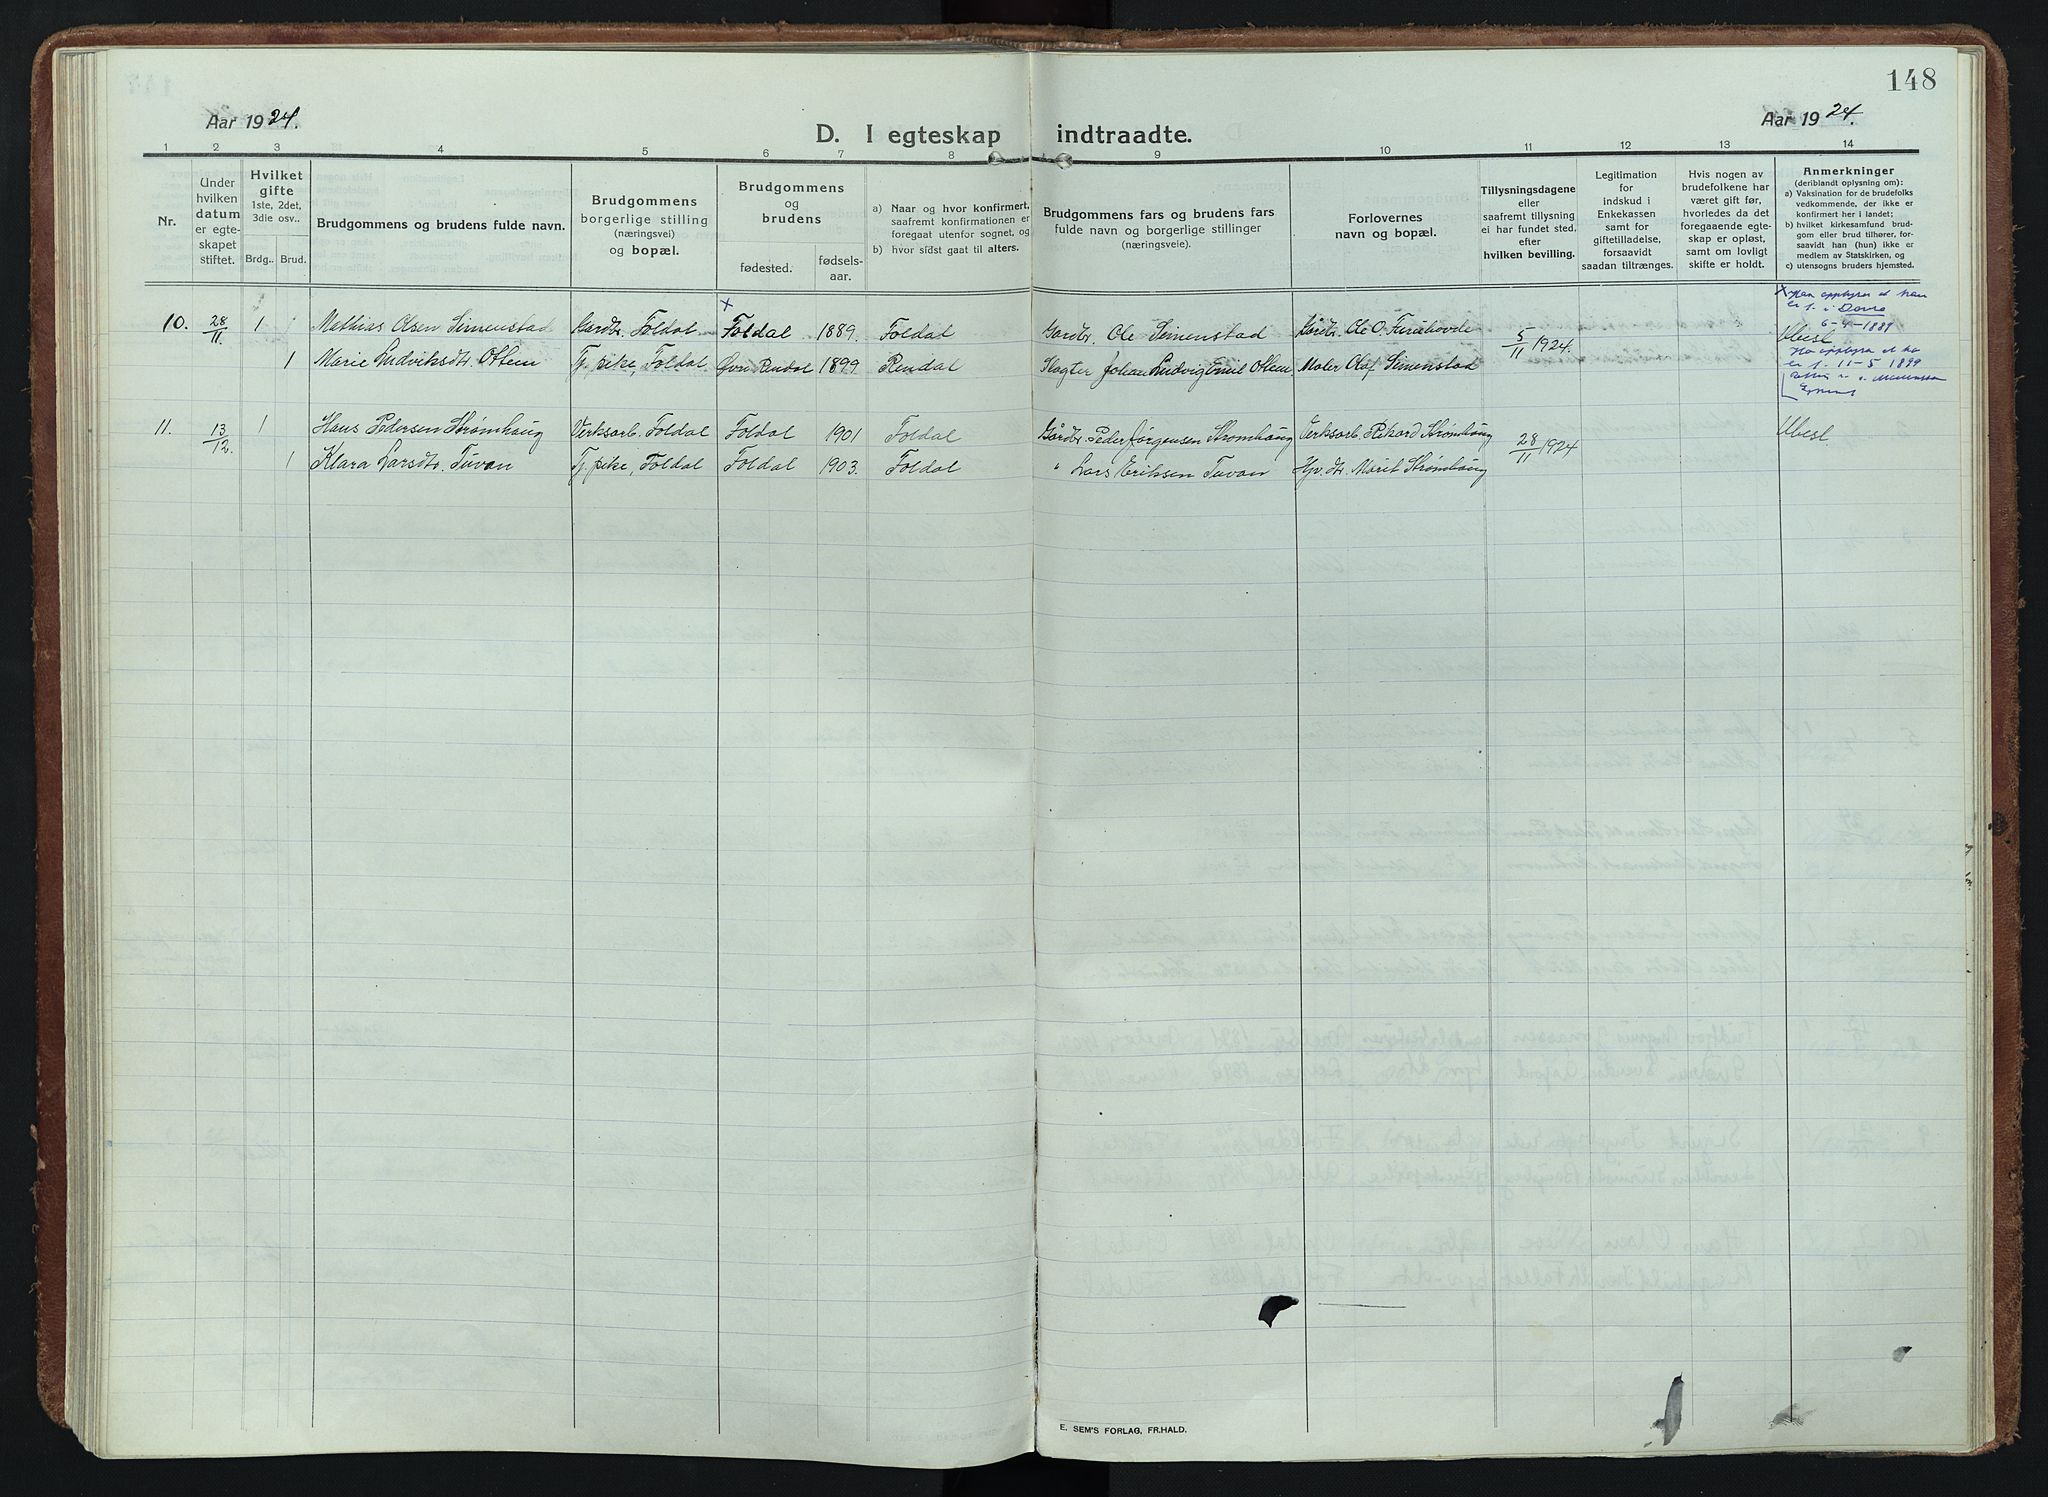 148
Aar 1924.
D. I egteskap indtraadte.
Aar 1924.
1 2 3 4 5 6 7 8 9 10 11 12 13 14
Nr.
Under hvilken datum er egteskapet stiftet.
Hvilket gifte 1ste, 2det, 3die osv..
Brdg.. Brud.
Brudgommens og brudens fulde navn.
Brudgommens borgerlige stilling (næringsvei) og bopæl.
Brudgommens og brudens
fødested.
fødselsaar.
a) Naar og hvor konfirmert, saafremt konfirmationen er foregaat utenfor sognet, og
b) hvor sidst gaat til alters.
Brudgommens fars og brudens fars fulde navn og borgerlige stillinger (næringsveie).
Forlovernes navn og bopæl.
Tillysningsdagene eller saafremt tillysning ei har fundet sted, efter hvilken bevilling.
Legitimation for indskud i Enkekassen samt for giftetilladelse, forsaavidt saadan tiltrænges.
Hvis nogen av brudefolkene har været gift før, hvorledes da det foregaaende egteskap er opløst, samt om lovligt skifte er holdt.
Anmerkninger (deriblandt oplysning om):
a) Vaksination for de brudefolks vedkommende, der ikke er konfirmert her i landet;
b) hvilket kirkesamfund brudgom eller brud tilhører, forsaavidt han (hun) ikke er medlem av Statskirken, og
c) utensogns bruders hjemsted.
10. 28/11 1 Mathias Olsen Simenstad Gardbr. Foldal x Foldal 1889. Foldal Gardbr. Ole Simenstad Gårdbr. Ole O. Furuhovde 5/11 1924. Ubesl
x Han opplyser at han er f. i Dovre 6-4-1889
1 Marie Ludviksdtr. Ottem Tj. pike, Foldal Øvre Rendal 1899 Rendal Slagter Johan Ludvig Emil Ottem, Maler Olaf Simenstad
Hun opplyser at hun er f. 11-5 1899
11. 13/12. 1 Hans Pedersen Strømhaug Verksarb. Foldal Foldal 1901 Foldal Gårdbr. Peder Jørgensen Strømhaug Verksarb. Rikard Strømhaug 28/11 1924 Ubesl
1 Klara Larsdtr. Tuvan Tj. pike, Foldal Foldal 1903. Foldal " Lars Eriksen Tuvan Hv. dtr. Marit Strømhaug
E. SEM'S FORLAG, FR.HALD.